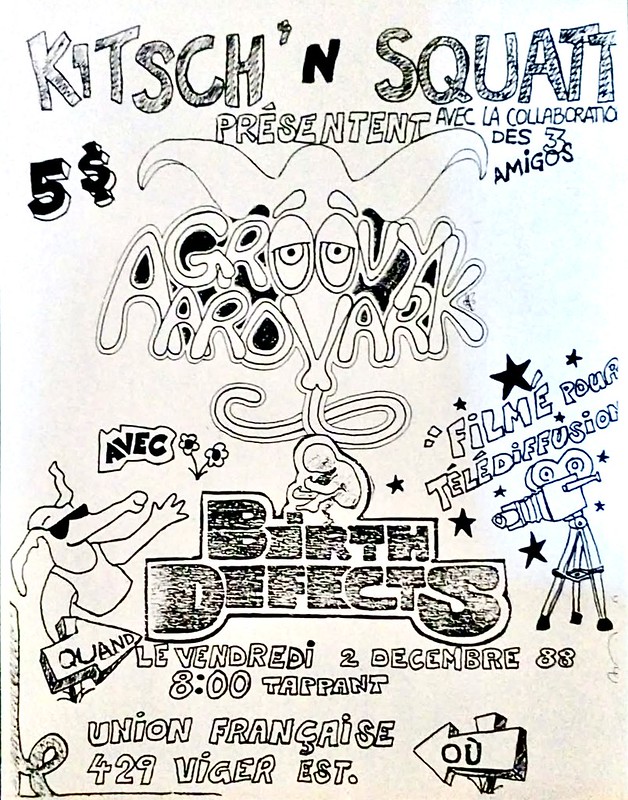 KITSCH'N SQUATT
PRÉSENTENT AVEC LA COLLABORATIO
DES 3
AMIGOS
5$
A GROOVY
AARDVARK
"FILMÉ POUR
TÉLÉDIFFUSION
AVEC
BIRTH
DEFECTS
QUAND
LE VENDREDI 2 DECEMBRE 88
8:00 TAPPANT
UNION FRANÇAISE
429 VIGER EST.
OÙ